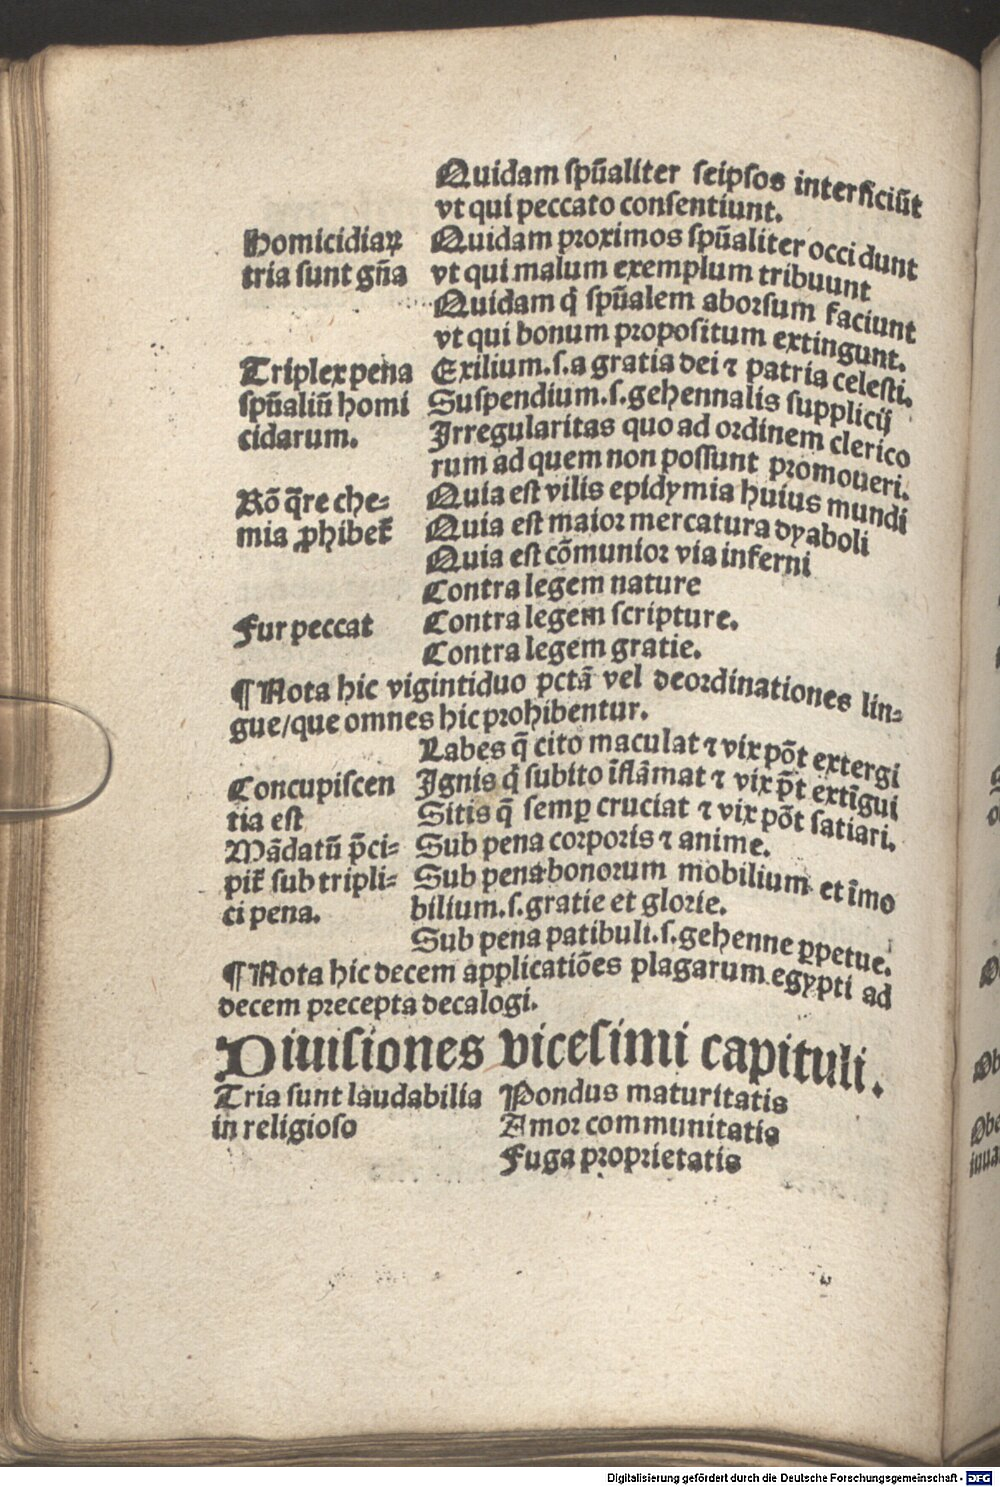 Quidam spūaliter seipsos interficiūt
vt qui peccato consentiunt.
Homicidiaꝝ
tria sunt gn̄a
Quidam proximos spūaliter occidunt
vt qui malum exemplum tribuunt
Quidam q̇ spūalem aborsum faciunt
vt qui bonum propositum extingunt.
Triplex pena
spūaliū homi
cidarum.
Exilium.s.a gratia dei ⁊ patria celesti.
Suspendium.s.gehennalis supplicij
Irregularitas quo ad ordinem clerico
rum ad quem non possunt promoueri.
Rō q̄re che-
mia ꝓhibet᷑
Quia est vilis epidymia huius mundi
Quia est maior mercatura dyaboli
Quia est cōmunior via inferni
Fur peccat
Contra legem nature
Contra legem scripture.
Contra legem gratie.
¶ Nota hic vigintiduo pctā vel deordinationes lin-
gue/que omnes hic prohibentur.
Concupiscen
tia est
Labes q̄ cito maculat ⁊ vix pōt extergi
Ignis q̇ subito īflāmat ⁊ vix p̄t extīgui
Sitis q̄ semꝑ cruciat ⁊ vix pōt satiari.
Mādatū p̄ci-
pit᷑ sub tripli-
ci pena.
Sub pena corporis ⁊ anime.
Sub pena bonorum mobilium et īmo
bilium.s.gratie et glorie.
Sub pena patibuli.s.gehenne ꝑpetue.
¶ Nota hic decem applicatiōes plagarum egypti ad
decem precepta decalogi.
Diuisiones vicesimi capituli.
Tria sunt laudabilia
in religioso
Pondus maturitatis
Amor communitatis
Fuga proprietatis
Digitalisierung gefördert durch die Deutsche Forschungsgemeinschaft - DFG